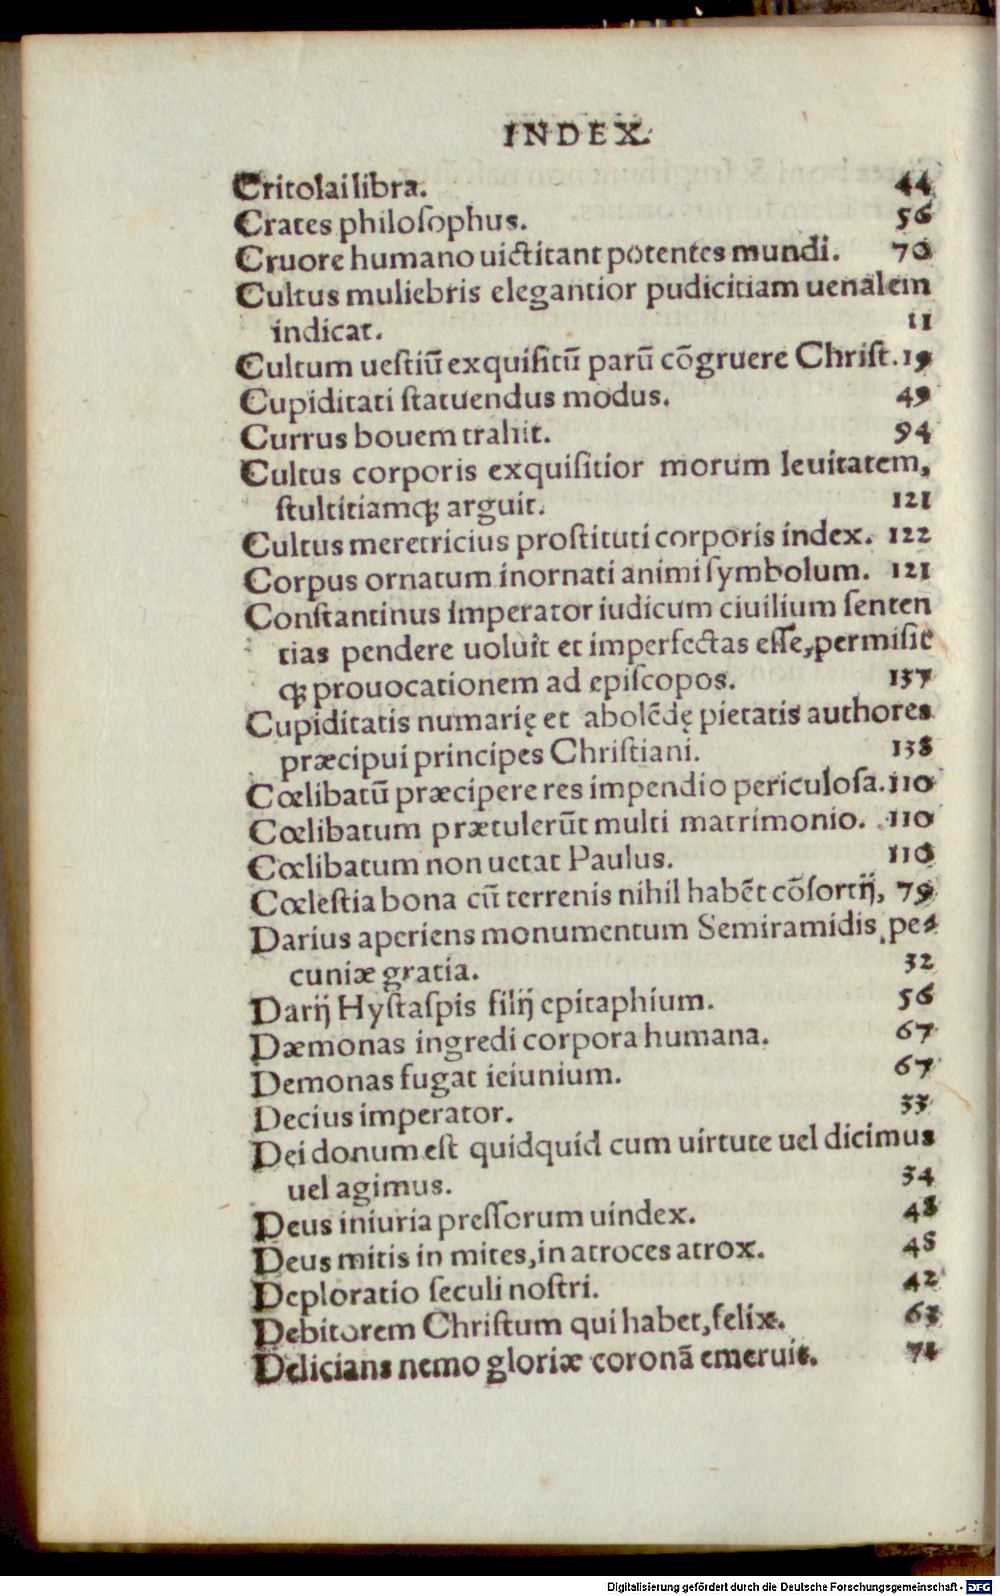 INDEX.
Critolai libra. 44
Crates philosophus. 56
Cruore humano uictitant potentes mundi. 70
Cultus muliebris elegantior pudicitiam uenalem
indicat. 11
Cultum uestiũ exquisitũ parũ cõgruere Christ. 19
Cupiditati statuendus modus. 49
Currus bouem trahit. 94
Cultus corporis exquisitior morum leuitatem,
stultitiamq; arguit. 121
Cultus meretricius prostituti corporis index. 122
Corpus ornatum inornati animi symbolum. 121
Constantinus Imperator iudicum ciuilium senten
tias pendere uoluit et imperfectas esse, permisit
q; prouocationem ad episcopos. 137
Cupiditatis numarię et abolẽdę pietatis authores
præcipui principes Christiani. 138
Cœlibatũ præcipere res impendio periculosa. 110
Cœlibatum prætulerũt multi matrimonio. 110
Cœlibatum non uetat Paulus. 110
Cœlestia bona cũ terrenis nihil habẽt cõsortij, 79
Darius aperiens monumentum Semiramidis, pe⸗
cuniæ gratia. 32
Darij Hystaspis filij epitaphium. 56
Dæmonas ingredi corpora humana. 67
Demonas fugat ieiunium. 67
Decius imperator. 33
Dei donum est quidquid cum uirtute uel dicimus
uel agimus. 34
Deus iniuria pressorum uindex. 48
Deus mitis in mites, in atroces atrox. 48
Deploratio seculi nostri. 42
Debitorem Christum qui habet, felix. 63
Delicians nemo gloriæ coronã emeruit. 71
Digitalisierung gefördert durch die Deutsche Forschungsgemeinschaft - DFG